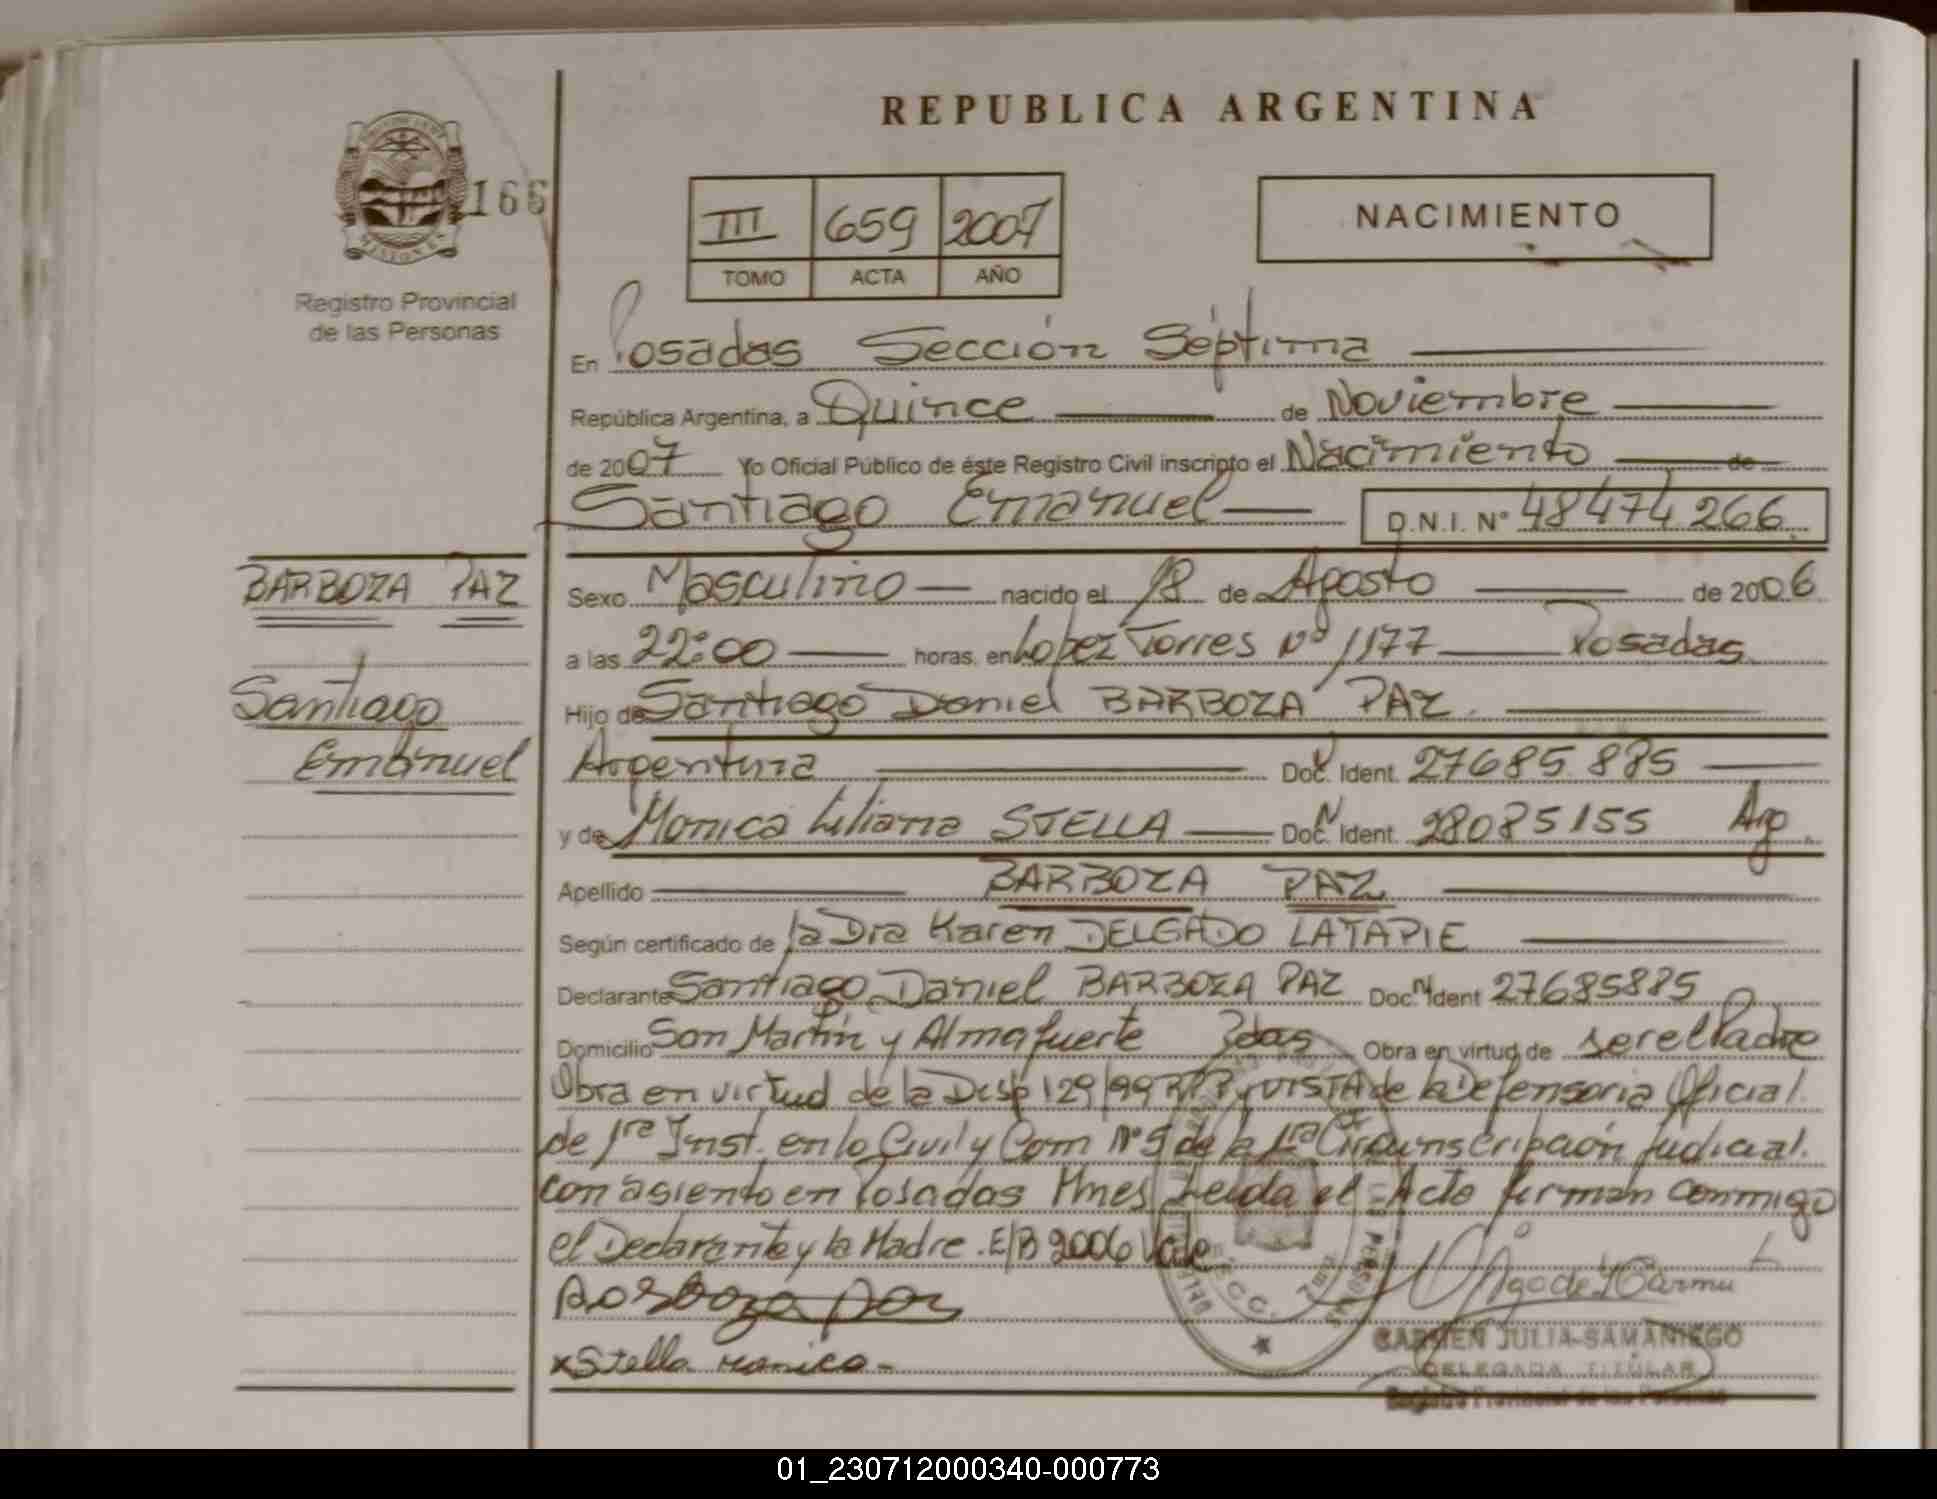 REPUBLICA ARGENTINA
166
III 659 2007
TOMO ACTA AÑO
NACIMIENTO
MISIONES
Registro Provincial
de las Personas
En Posadas Sección Séptima
República Argentina, a Quince de Noviembre
de 2007 Yo Oficial Público de éste Registro Civil inscripto el Nacimiento de
Santiago Emanuel D.N.I. Nº 48474266
BARBOZA PAZ
Santiago
Emanuel
Sexo Masculino nacido el 18 de Agosto de 2006
a las 22:00 horas. en Lopez Torres Nº 1177 Posadas
Hijo de Santiago Daniel BARBOZA PAZ
Argentina Doc. Ident. 27685885
y de Monica Liliana STELLA Doc. Ident. 28085155 Arg.
Apellido BARBOZA PAZ
Según certificado de la Dra Karen DELGADO LATAPIE
Declarante Santiago Daniel BARBOZA PAZ Doc. Ident 27685885
Domicilio San Martín y Almafuerte Pdas Obra en virtud de ser el Padre
Obra en virtud de la Disp 129/99 RPP y VISTA de la Defensoria Oficial.
de 1ra Inst. en lo Civil y Com Nº 5 de la 1ra Circunscripción Judicial.
con asiento en Posadas Mnes Leida el Acta firman conmigo
el Declarante y la Madre. E/B 2006 Vale
Barboza Paz
xStella Monica-
CARMEN JULIA SAMANIEGO
DELEGADA TITULAR
Registro Provincial de las Personas
01_230712000340-000773